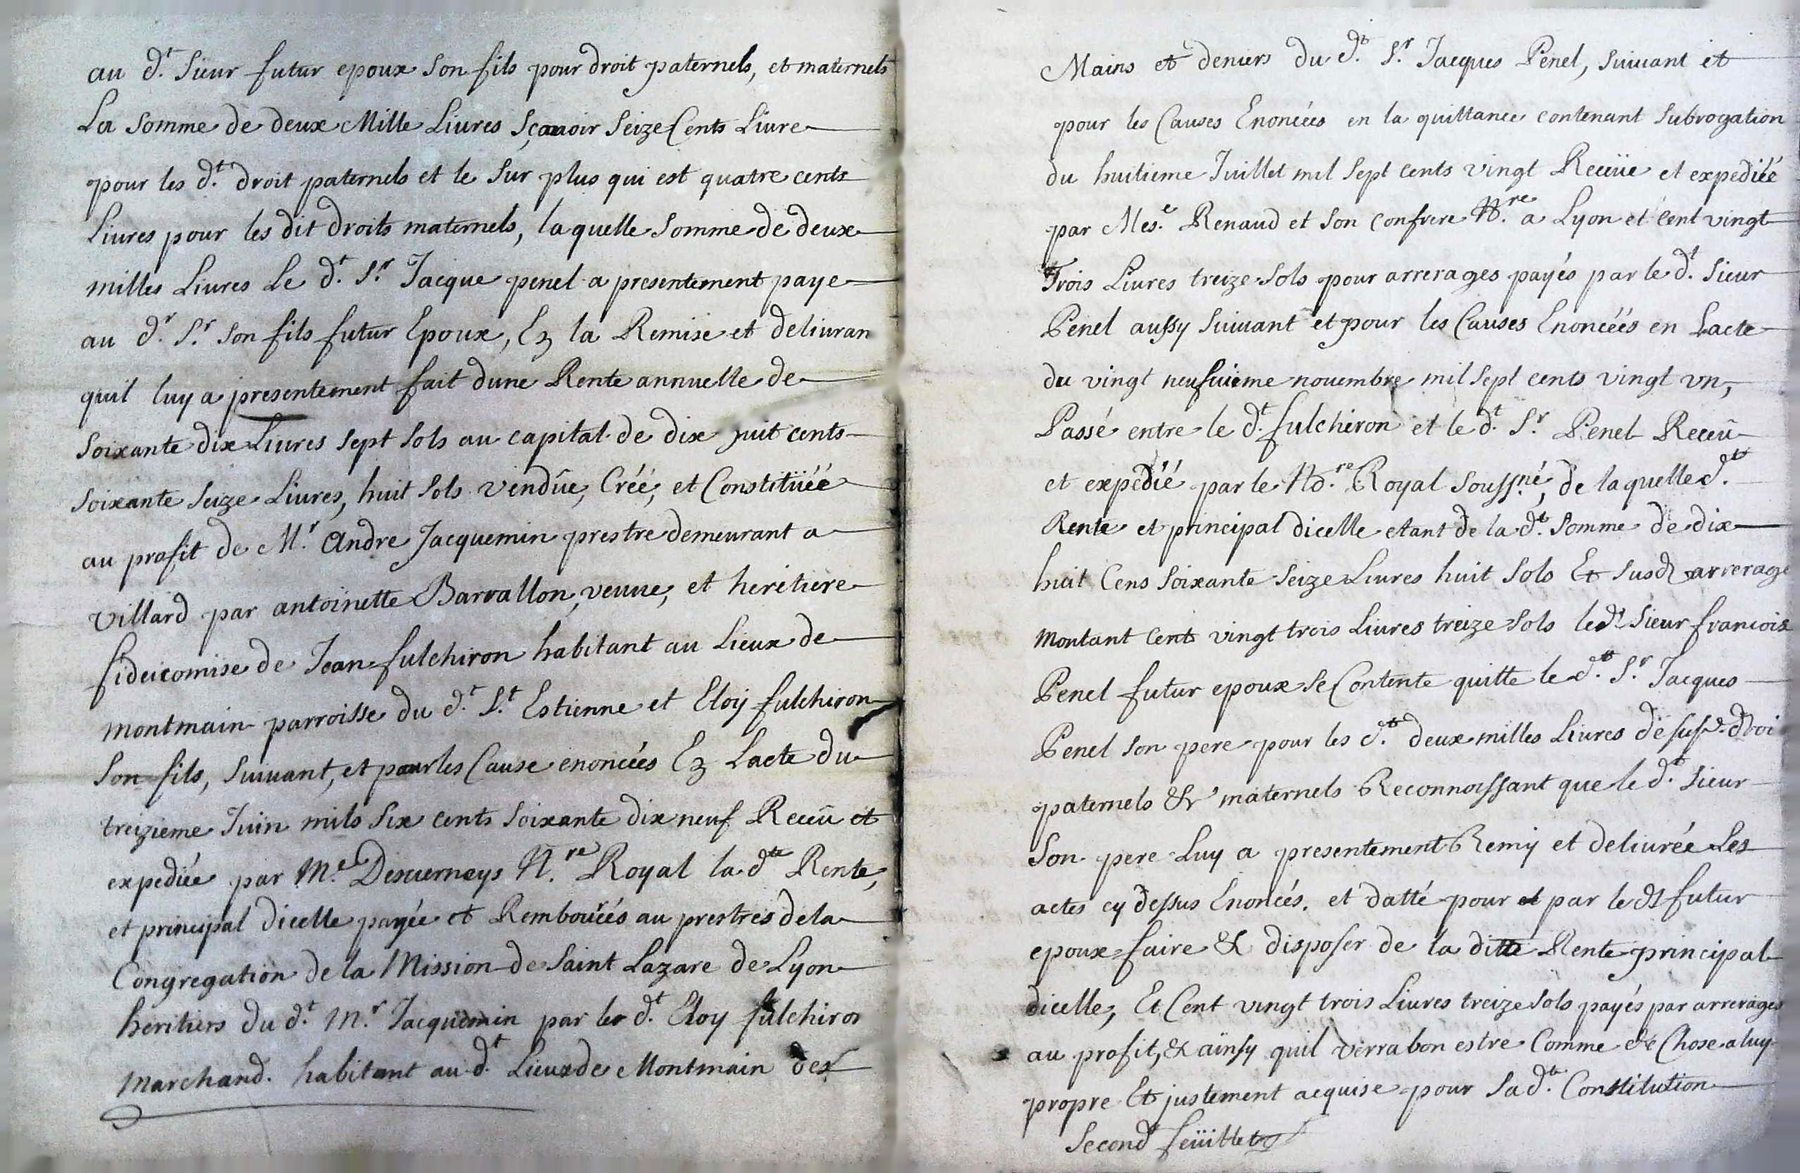 au d.t sieur futur epoux son fils pour droit paternels, et maternels
La somme de deux Mille Livres sçavoir seize Cents Livre
pour les d.t droit paternels et le sur plus qui est quatre cents
Livres pour les dit droits maternels, laquelle somme de deux
milles Livres Le d.t S.r Jacque penel a presentement paye
au d.r S.r son fils futur Epoux, En la Remise et delivran
quil luy a presentement fait dune Rente annuelle de
soixante dix Livres sept sols au capital de dix huit cents
soixante seize Livres, huit sols vendüe, Créé, et Constitüéé
au profit de M.r Andre Jacquemin prestre demeurant a
Villard par antoinette Barvallon, veuve, et heritiere
fideicomise de Jean fulchiron habitant au Lieux de
montmain parroisse du d.t S.t Estienne et Eloy fulchiron
son fils, suivant, et pour les Cause enoncées En Lacte du
treizieme Juin mils six cents soixante dix neuf Receu et
expediée par M.e Descverneys N.re Royal la d.te Rente,
et principal dicelle payée et Remboursés au prestres de la
Congregation de la Mission de Saint Lazare de Lyon
heritiers du d.t M.r Jacquemin par le d.t Eloy fulchiron
marchand. habitant au d.t Lieux de Montmain des
Mains et deniers du d.t S.r Jacques Penel, suivant et
pour les Causes Enoncées en la quittance contenant subrogation
du huitieme Juillet mil sept cents vingt Receüe et expediéé
par Mes.e Renaud et son confrere N.re a Lyon et cent vingt
Trois Livres treize sols pour arrerages payés par le d.t sieur
Penel aussy suivant et pour les Causes Enoncéés en Lacte
du vingt neufuieme novembre mil sept cents vingt un,
Passé entre le d.t fulchiron et le d.t S.r Penel Receü
et expedié par le No.re Royal souss.né, de laquelle d.te
Rente et principal dicelle etant de la d.te somme de dix
huit Cens soixante seize Livres huit sols Et susd arrerage
montant cents vingt trois Livres treize sols le d.t sieur francois
Penel futur epoux se Contente quitte le d.t S.r Jacques
Penel son pere pour les d.ts deux milles Livres desusd. droi
paternels & maternels Reconnoissant que le d.t sieur
son pere Luy a presentement Remy et delivrée Les
actes cy dessus Enoncés. et datté pour et par le dt futur
epoux faire & disposer de la ditte Rente principal
dicelle, Et Cent vingt trois Livres treize sols payés par arrerages
au profit, & ainsy quil verra bon estre Comme de Chose a luy
propre Et justement acquise pour sa d.te Constitution
second feüillet